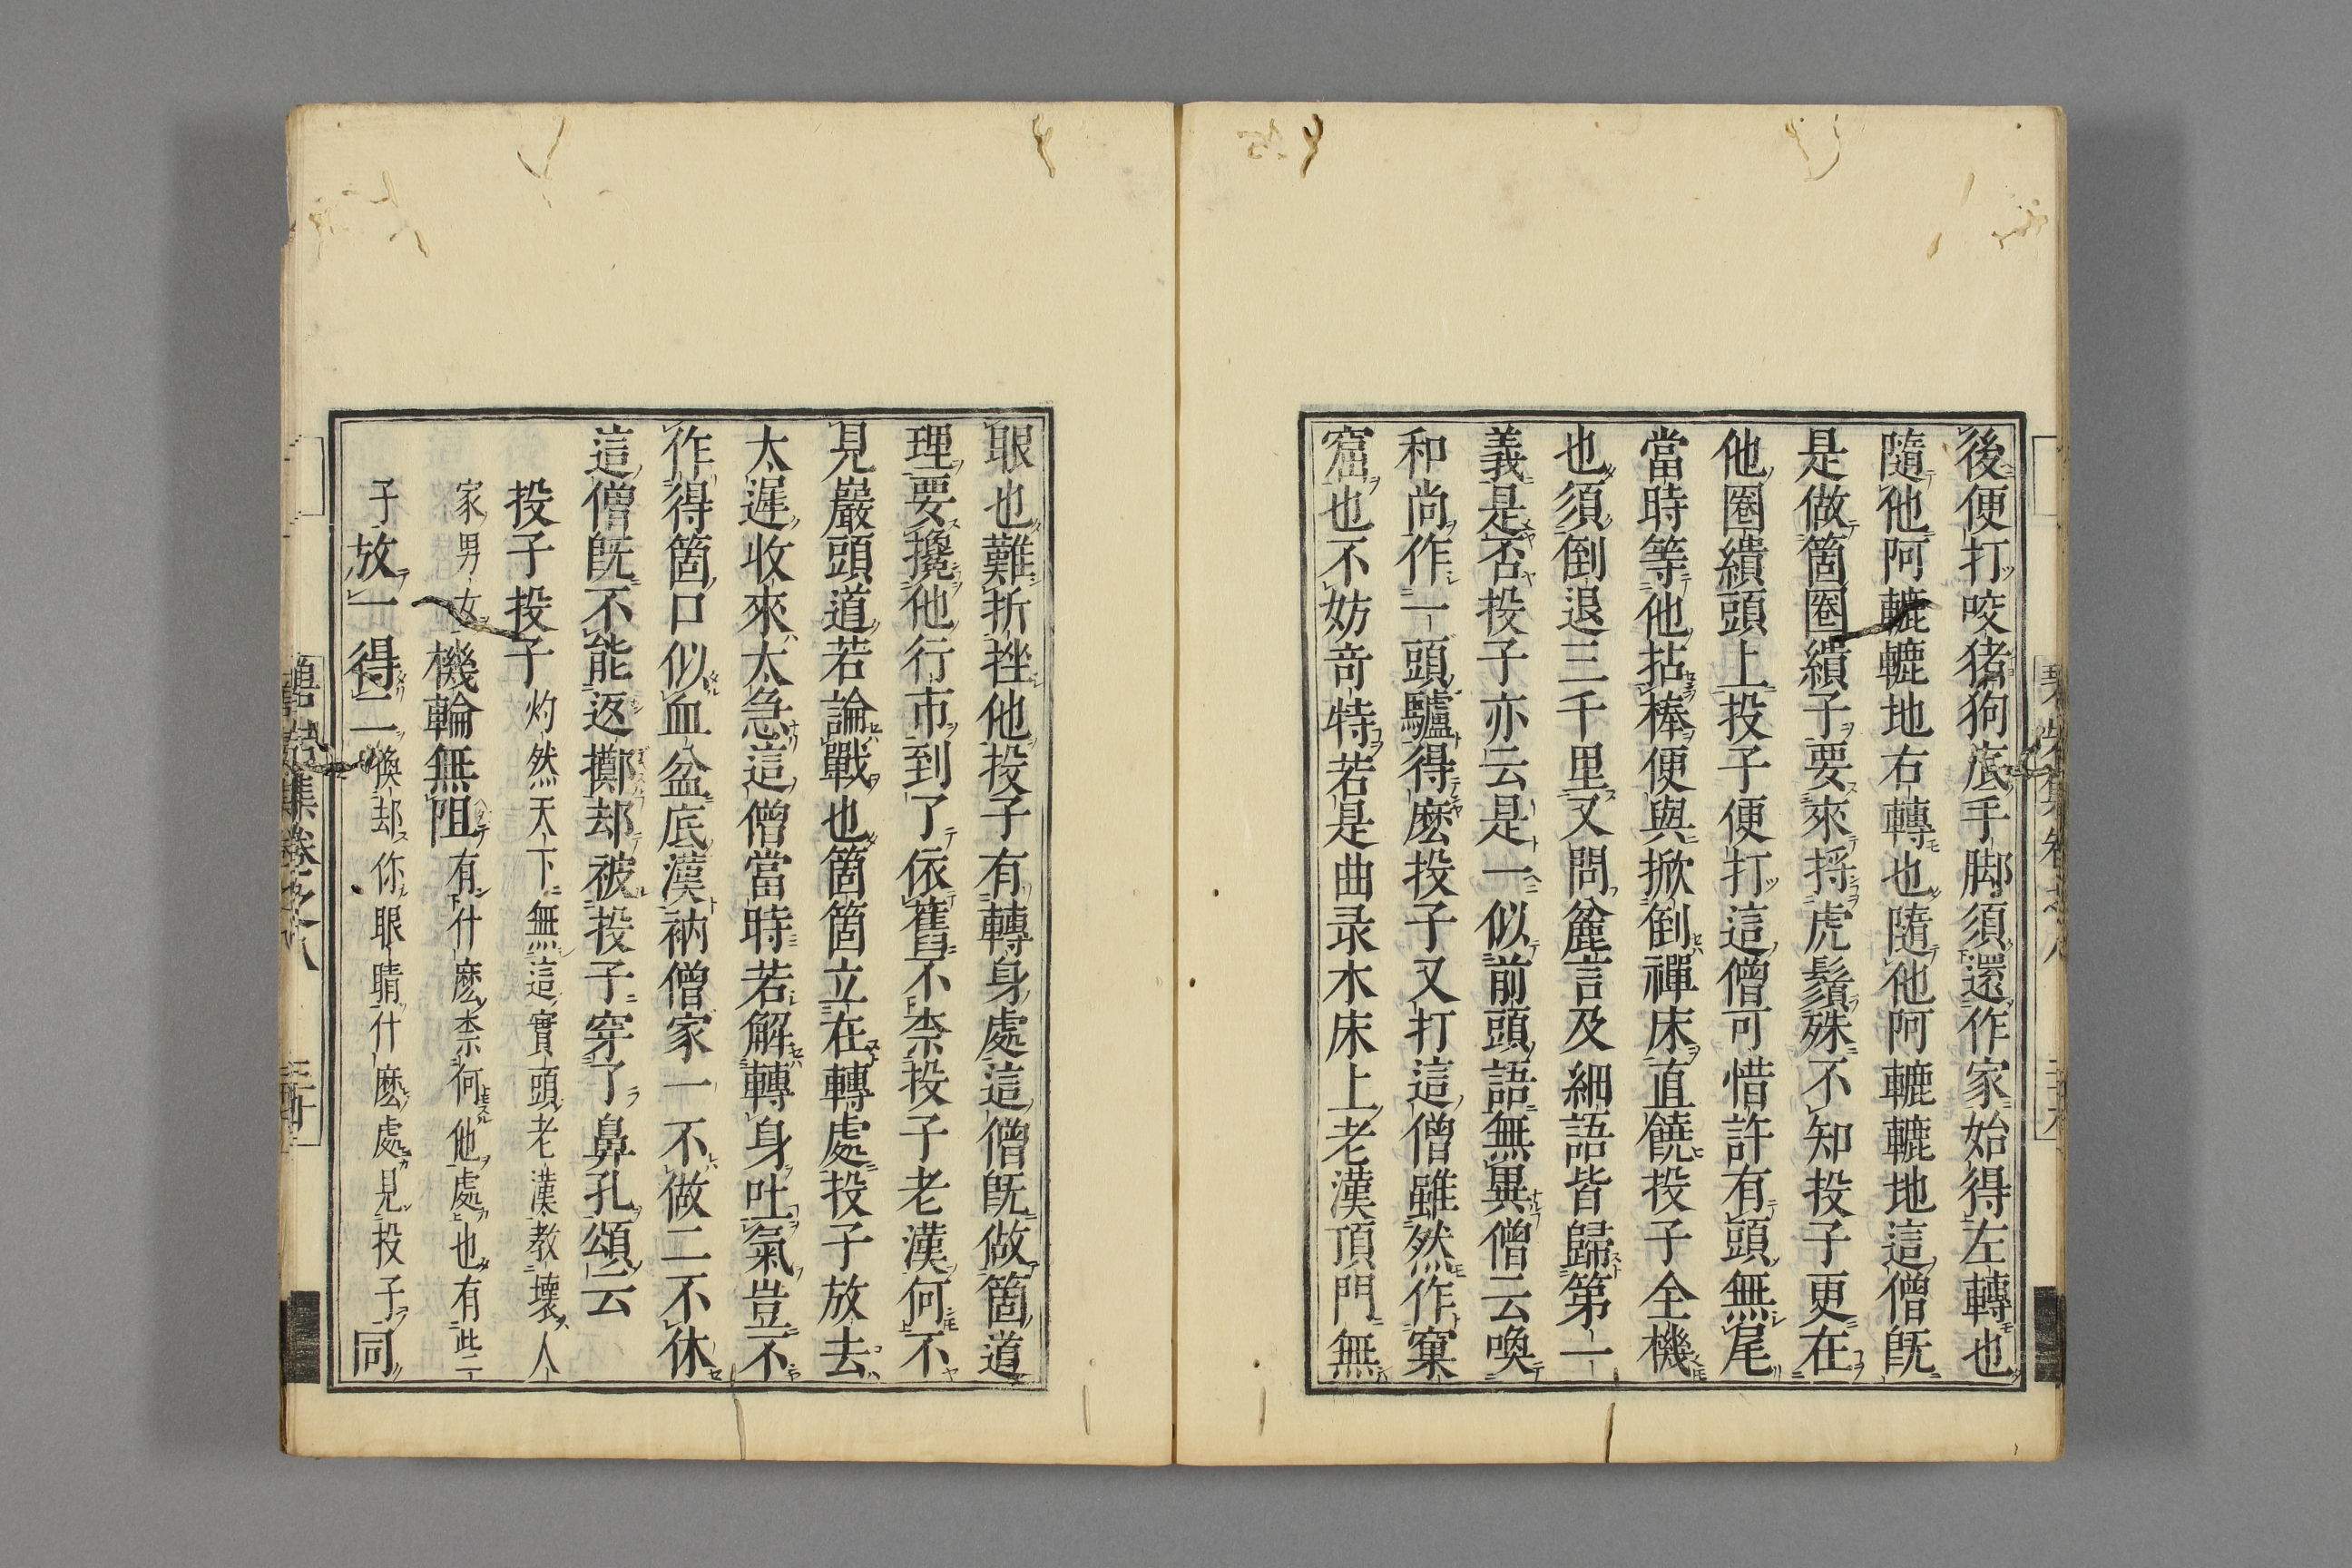 後便打咬猪狗底手脚須還作家始得左轉也
隨他阿轆轆地右轉也隨他阿轆轆地這僧旣
是做箇圈繢子要來捋虎鬚殊不知投子更在
他圈繢頭上投子便打這僧可惜許有頭無尾
當時等他拈棒便與掀倒禪床直饒投子全機
也須倒退三千里又問麄言及細語皆歸第一
義是否投子亦云是一似前頭語無異僧云喚
和尚作一頭驢得麽投子又打這僧雖然作窠
窟也不妨奇特若是曲录木床上老漢頂門無
眼也難折挫他投子有轉身處這僧旣做箇道
理要攙他行市到了依舊不柰投子老漢何不
見巖頭道若論戰也箇箇立在轉處投子放去
太遲收來太急這僧當時若解轉身吐氣豈不
作得箇口似血盆底漢衲僧家一不做二不休
這僧旣不能返擲却被投子穿了鼻孔頌云
投子投子灼然天下無這實頭老漢教壞人
家男女機輪無阻有什麽柰何他處也有些二
子放一得二換却你眼睛什麽處見投子同
碧巖集卷之八